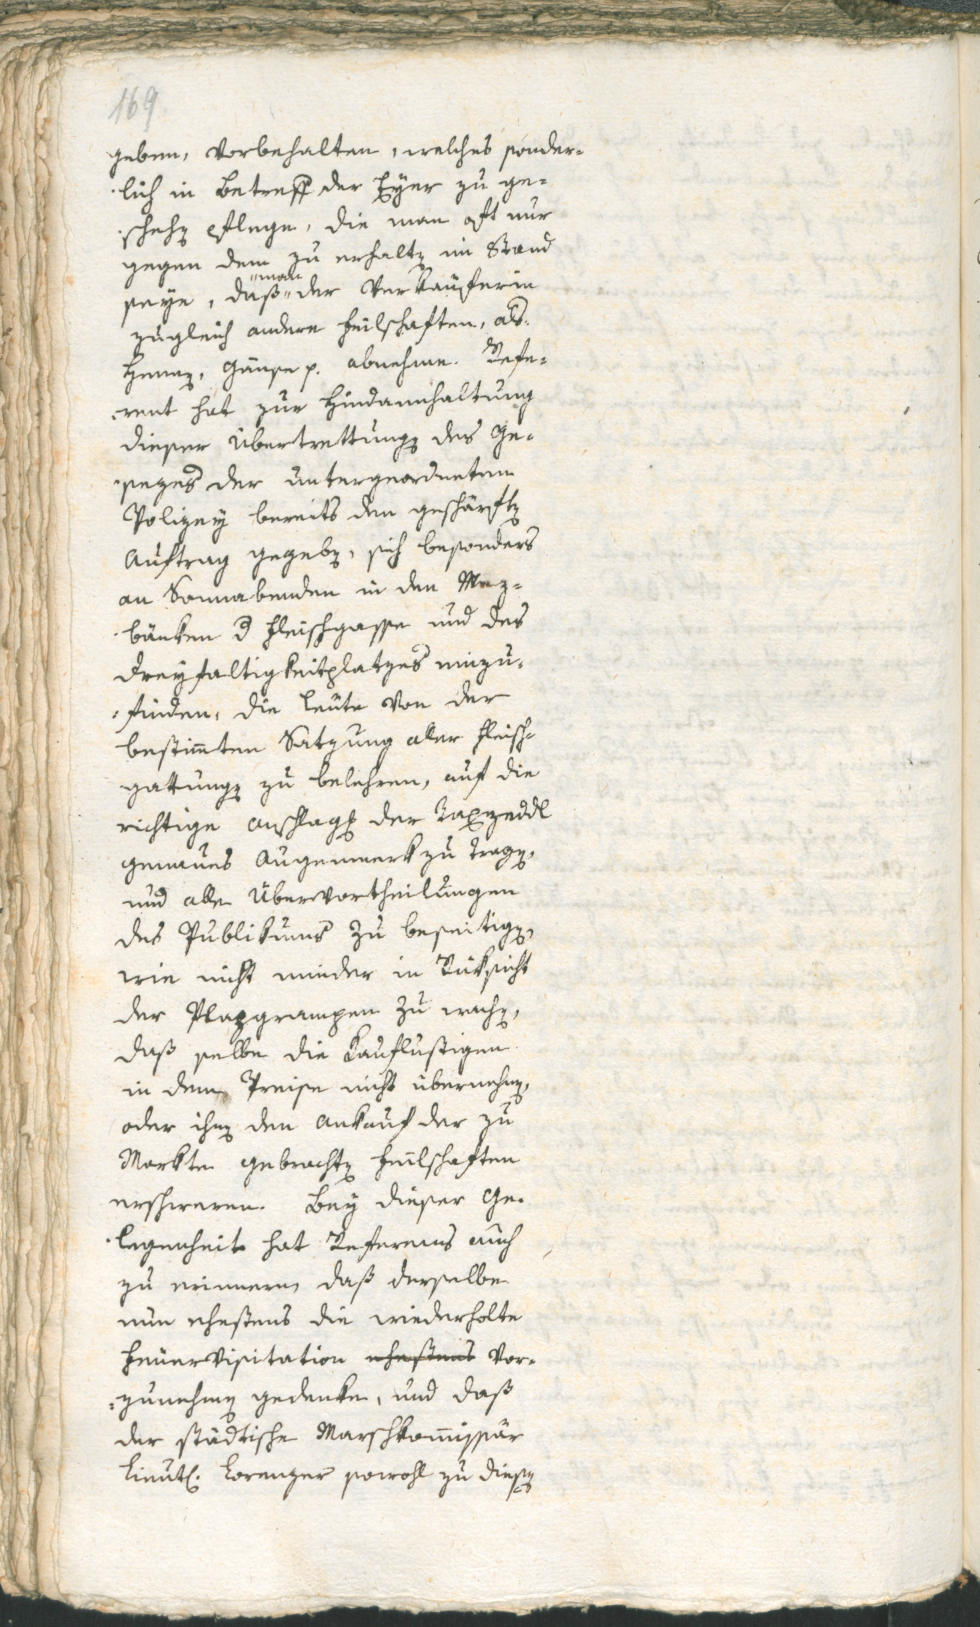 169
geben, vorbehalten, welches sonder-
lich in Betreff der Eyer zu ge-
schehen pflege, die man oft nur
gegen dem zu erhalten im Stand
seye, daß man der Verkäuferin
zugleich andere Feilschaften, als
Hennen, Gänse p. abnehme. Refe-
rent hat zur Hindannhaltung
dieser Übertrettungen des Ge-
sezes der untergeordneten
Polizey bereits den geschärften
Auftrag gegeben, sich besonders
an Sonnabenden in den Mez-
bänken d Fleischgasse und des
Dreyfaltigkeitplatzes einzu-
finden, die Leute von der
bestimmten Satzung aller Fleisch-
gattungen zu belehren, auf die
richtige Anschlag der Taxzeddl
genaues Augenmerk zu tragen,
und alle Übervortheilungen
des Publikums zu beseitigen,
wie nicht minder in Rüksicht
der Plazgrampen zu wachen,
daß selbe die Kauflustigen
in dem Preise nicht übernehmen,
oder ihnen den Ankauf der zu
Markte gebrachten Feilschaften
erschweren. Bey dieser Ge-
legenheit hat Referens auch
zu erinnern, daß derselbe
nun ehestens die wiederholte
Feuervisitation ehestens vor-
zunehmen gedenke, und daß
der städtische Marschkommissär
Lieut. Lorenzer sowohl zu diesen